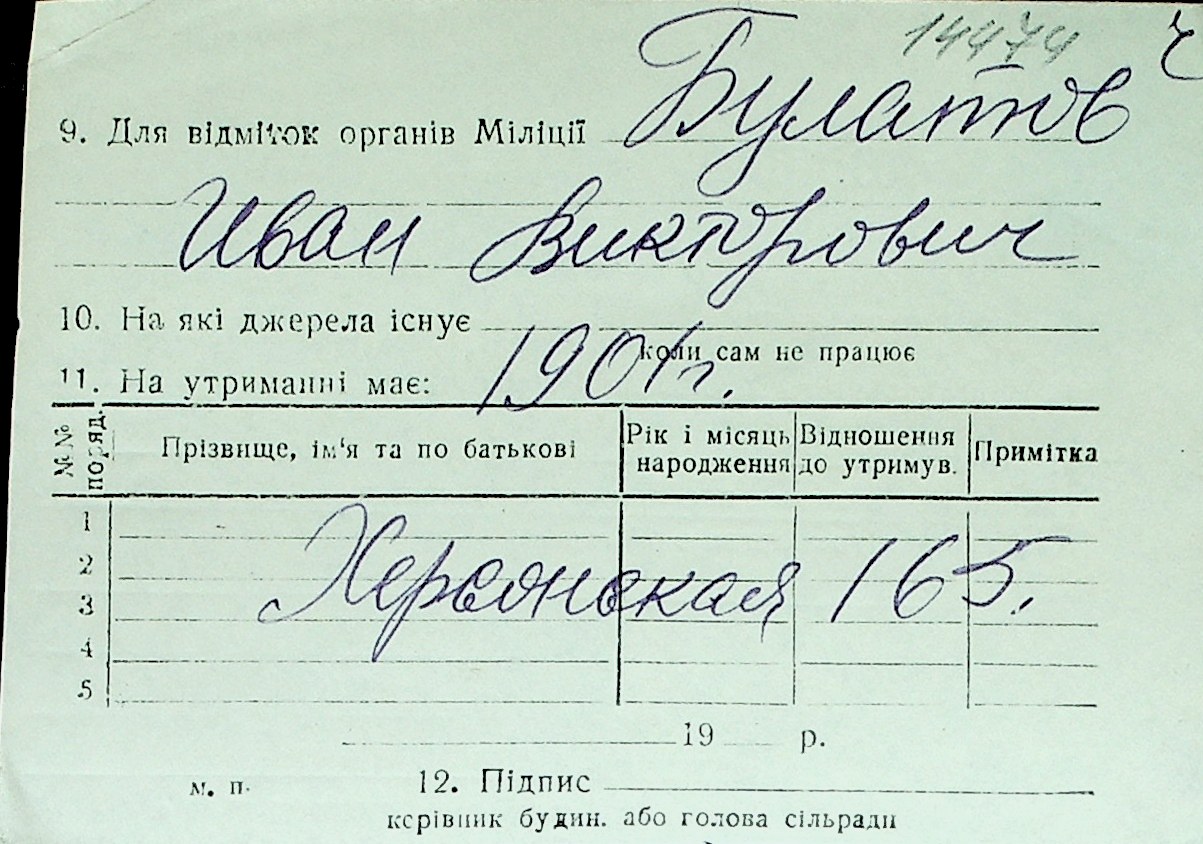 14474
9. Для відміток органів Міліції Булатов
Иван Викторович
10. На які джерела існує
коли сам не працює
11. На утриманні має: 1901 г.
№№ поряд. Прізвище, ім'я та по батькові Рік і місяць народження Відношення до утримув. Примітка
1
2
3 Херсонская 165.
4
5
19 р.
м. п. 12. Підпис
керівник будин. або голова сільради